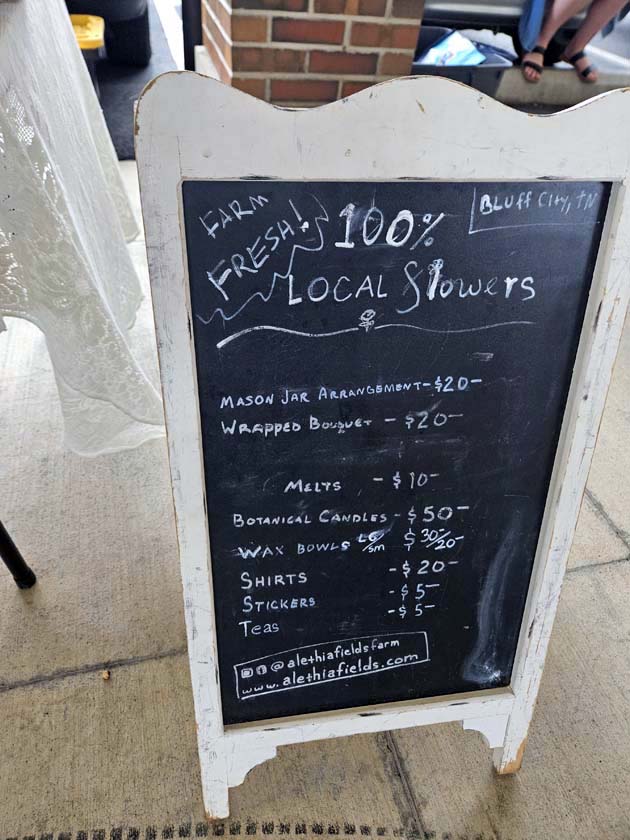 FARM
FRESH!
100%
LOCAL flowers
BLUFF CITY, TN
MASON JAR ARRANGEMENT-$20-
WRAPPED BOUQUET - $20-
MELTS - $10-
BOTANICAL CANDLES - $50-
WAX BOWLS LG/SM $30/20-
SHIRTS - $20-
STICKERS - $5-
Teas - $5-
@alethiafieldsfarm
www.alethiafields.com